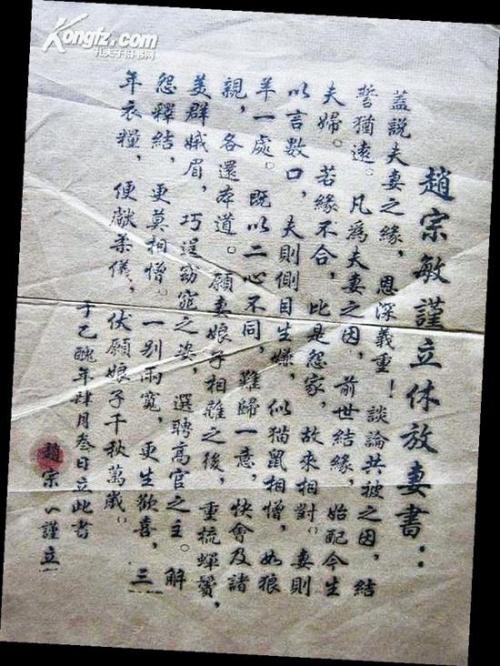 Kongfz.com
孔夫子旧书网
趙宗敏謹立休放妻書：
蓋說夫妻之緣，恩深義重！談論共被之因，結
誓猶遠。凡為夫妻之因，前世結緣，始配今生
夫婦。若緣不合，比是怨家，故來相對。妻則
以言數口，夫則側目生嫌，似猫鼠相憎，如狼
羊一處。既以二心不同，難歸一意，快會及諸
親，各還本道。願妻娘子相離之後，重梳蟬鬢，
美群娥眉，巧逞窈窕之姿，選聘高官之主。解
怨釋結，更莫相憎。一別兩寬，更生歡喜，三
年衣糧，便獻柔儀，伏願娘子千秋萬歲。
于乙醜年肆月叁日立此書
趙宗謹立